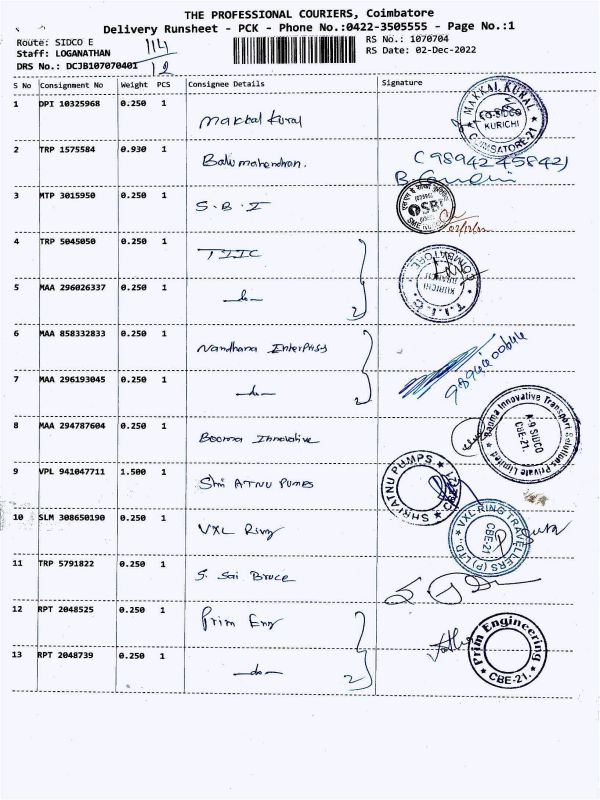 THE PROFESSIONAL COURIERS, Coimbatore
Delivery Runsheet - PCK - Phone No.:0422-3505555 - Page No.:1
Route: SIDCO E 114 RS No.: 1070704
Staff: LOGANATHAN RS Date: 02-Dec-2022
DRS No.: DCJB107070401 12
S No Consignment No Weight PCS Consignee Details Signature
1 DPI 10325968 0.250 1 Makkal Kural
MAKKAL KURAL SIDCO KURICHI COIMBATORE-21
2 TRP 1575584 0.930 1 Balumahendran. (9894245842)
3 MTP 3015950 0.250 1 S.B.I SBI 02/12/22
4 TRP 5045050 0.250 1 TIIC
T.I.I.C KURICHI BRANCH COIMBATORE
5 MAA 296026337 0.250 1 —do— 2
6 MAA 858332833 0.250 1 Nandhana Enterprises
7 MAA 296193045 0.250 1 —do— 2
8 MAA 294787604 0.250 1 Booma Innovative
Booma Innovative Transport Solutions Private Limited A-9 SIDCO CBE-21.
9 VPL 941047711 1.500 1 Shri ATNU PUMPS
SHRI ATNU PUMPS
10 SLM 308650190 0.250 1 VXL Ring
VXL RING TRAVELLERS (P) LTD., CBE-21
11 TRP 5791822 0.250 1 S. Sai Bruce
12 RPT 2048525 0.250 1 Prim Eng
Prim Engineering CBE-21.
13 RPT 2048739 0.250 1 —do— 2